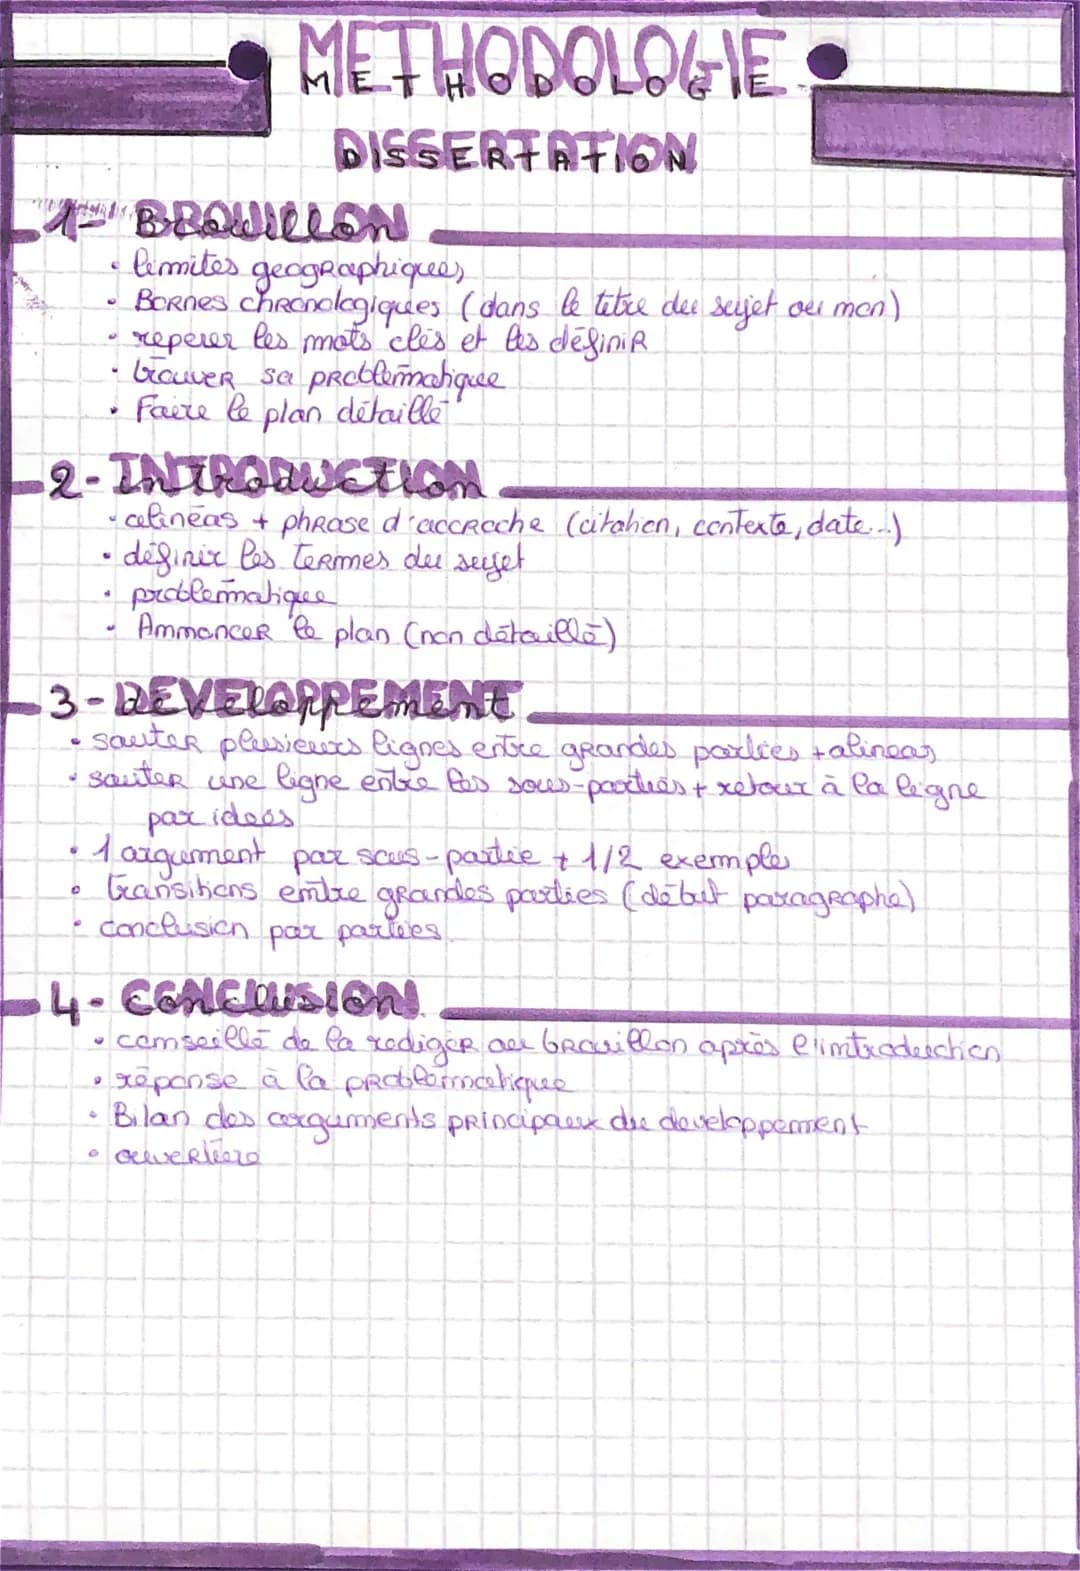 METHODOLOGIE
DISSERTATION
1- BROUILLON
• limites geographiques
• Bornes chronologiques (dans le titre du sujet ou non)
• reperer les mots clés et les définir
• trouver sa problématique
• Faire le plan détaillé
2- INTRODUCTION
• alinéas + phrase d'accroche (citation, contexte, date...)
• définir les termes du sujet
• problématique
• Annoncer le plan (non détaillé)
3- DEVELOPPEMENT
• sauter plusieurs lignes entre grandes parties + alineas
• sauter une ligne entre les sous-parties + retour à la ligne
par idees
• 1 argument par sous-partie + 1/2 exemples
• transitions entre grandes parties (début paragraphe)
• conclusion par parties.
4- CONCLUSION
• conseillé de la rediger au brouillon après l'introduction
• réponse à la problématique
• Bilan des arguments principaux du developpement
• ouverture